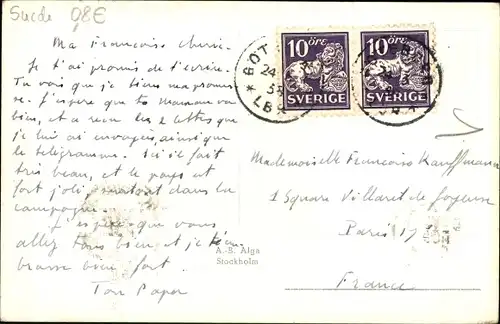 Suède 08€
Ma Françoise chérie
Je t'ai promis de t'écrire.
Tu vois que je tiens ma promes
se. J'espère que ta Maman va
bien, et a reçu les 2 lettres que
je lui ai envoyées, ainsi que
le télégramme. Ici il fait
très beau, et le pays est
fort joli, surtout dans la
campagne.
J'espère que vous
allez tous bien et je t'em-
brasse bien fort.
Ton Papa
10 ÖRE
SVERIGE
10 ÖRE
SVERIGE
GÖT
24
LBR
Mademoiselle Françoise Kauffmann
1 Square Villaret de Joyeuse
Paris 17
France
A.-B. Alga
Stockholm